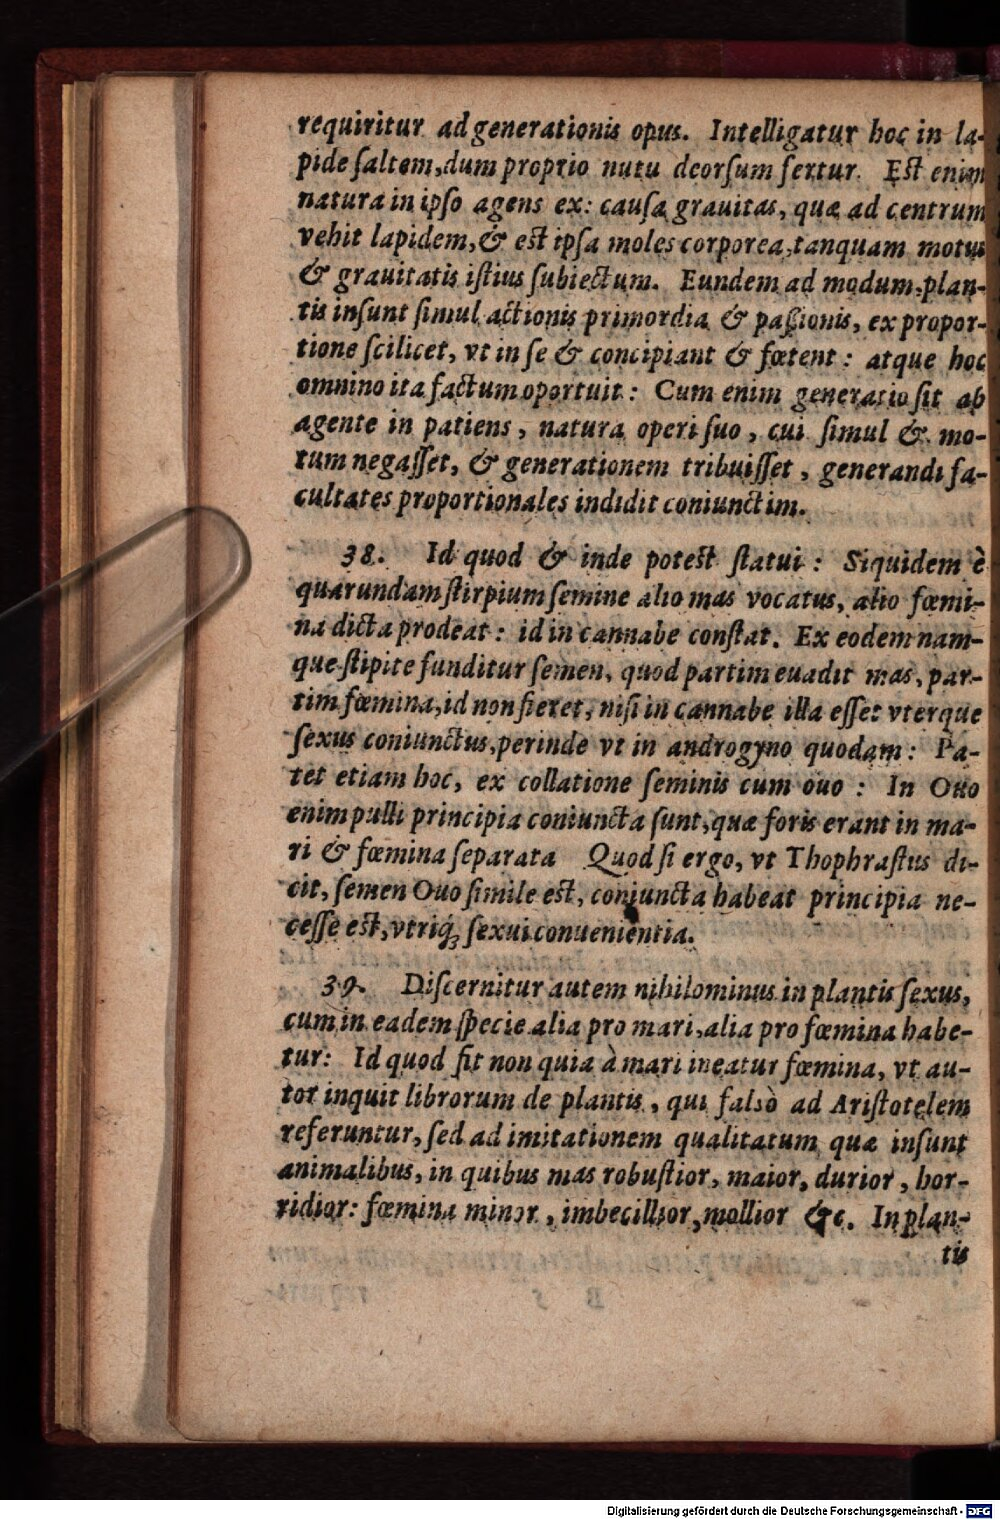 requiritur ad generationis opus. Intelligatur hoc in la-
pide ſaltem, dum proprio nutu deorſum fertur. Eſt enim
natura in ipſo agens ex: cauſa grauitas, quæ ad centrum
vehit lapidem, & eſt ipſa moles corporea, tanquam motus
& grauitatis iſtius ſubiectum. Eundem ad modum, plan-
tis inſunt ſimul actionis primordia & paßionis, ex propor-
tione ſcilicet, vt in ſe & concipiant & fœtent: atque hoc
omnino ita factum oportuit: Cum enim generatio ſit ab
agente in patiens, natura operi ſuo, cui ſimul & mo-
tum negaſſet, & generationem tribuiſſet, generandi fa-
cultates proportionales indidit coniunctim.
38. Id quod & inde poteſt ſtatui: Siquidem è
quarundam ſtirpium ſemine alio mas vocatus, alio fœmi-
na dicta prodeat: id in cannabe conſtat. Ex eodem nam-
que ſtipite funditur ſemen, quod partim euadit mas, par-
tim fœmina, id non fieret, niſi in cannabe illa eſſet vterque
ſexus coniunctus, perinde vt in androgyno quodam: Pa-
tet etiam hoc, ex collatione ſeminis cum ouo: In Ouo
enim pulli principia coniuncta ſunt, quæ foris erant in ma-
ri & fœmina ſeparata Quod ſi ergo, vt Thophraſtus di-
cit, ſemen Ouo ſimile eſt, coniuncta habeat principia ne-
ceſſe eſt, vtriq́; ſexui conuenientia.
39. Diſcernitur autem nihilominus in plantis ſexus,
cum in eadem ſpecie alia pro mari, alia pro fœmina habe-
tur: Id quod fit non quia à mari ineatur fœmina, vt au-
tor inquit librorum de plantis, qui falsò ad Ariſtotelem
referuntur, ſed ad imitationem qualitatum quæ inſunt
animalibus, in quibus mas robuſtior, maior, durior, hor-
ridior: fœmina minor, imbecillior, mollior &c. In plan-
tis
Digitalisierung gefördert durch die Deutsche Forschungsgemeinschaft - DFG